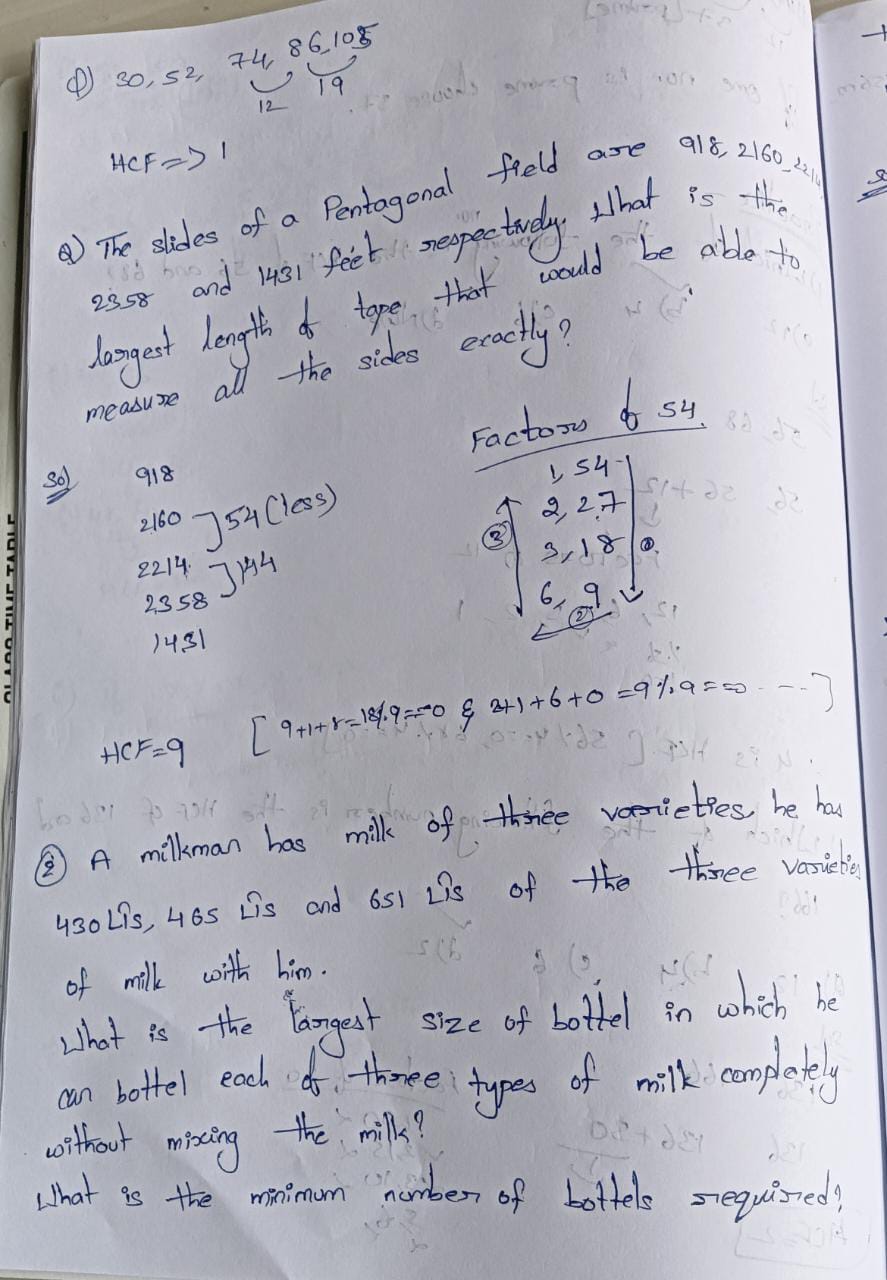 Q) 30, 52, 74, 86, 105
12 19
HCF => 1
Q) The slides of a Pentagonal field are 918, 2160, 2214,
2358 and 1431 feet respectively. What is the
largest length of tape that would be able to
measure all the sides exactly?
Sol) 918
2160 ] 54 (less)
2214 ] 144
2358
1431
Factors of 54.
1, 54
2, 27
3, 18
6, 9
③
②
HCF=9 [9+1+8=18%9==0 & 2+1+6+0=9%9==0 ----]
② A milkman has milk of three varieties, he has
430 Lis, 465 Lis and 651 Lis of the three varieties
of milk with him.
What is the largest size of bottel in which he
can bottel each of three types of milk completely
without mixing the milk?
What is the minimum number of bottels required?
CLASS TIME TABLE